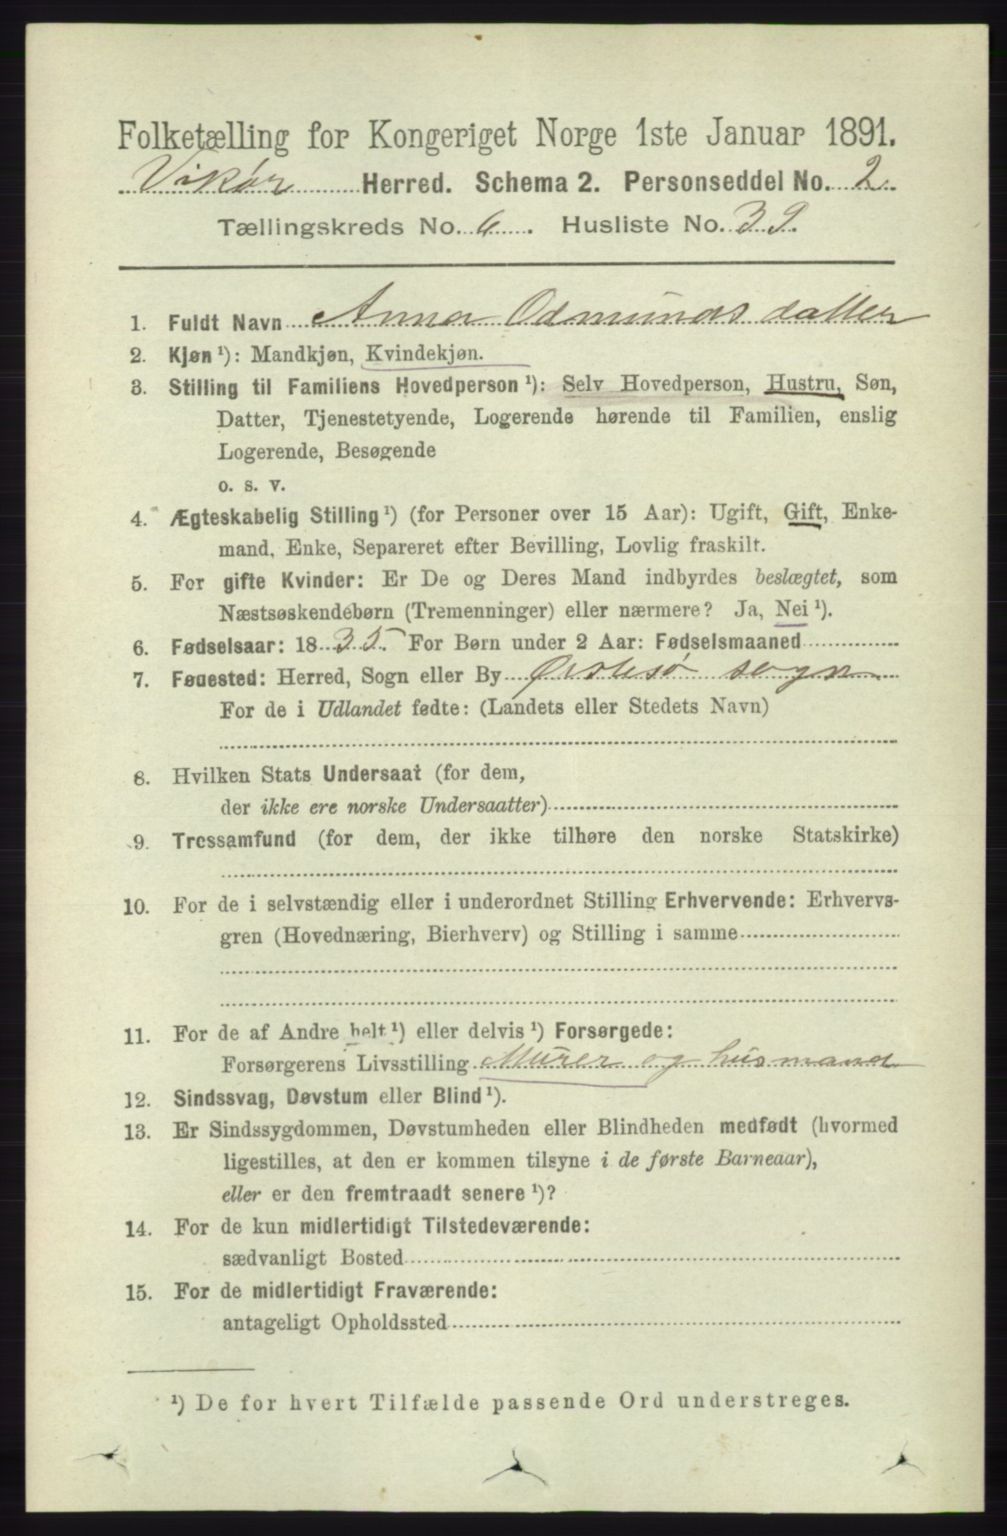 Folketælling for Kongeriget Norge 1ste Januar 1891.
Vikør Herred. Schema 2. Personseddel No. 2
Tællingskreds No. 6. Husliste No. 39.
1. Fuldt Navn Anna Odmundsdatter
2. Kjøn ¹): Mandkjøn, Kvindekjøn.
3. Stilling til Familiens Hovedperson ¹): Selv Hovedperson, Hustru, Søn,
Datter, Tjenestetyende, Logerende hørende til Familien, enslig
Logerende, Besøgende
o. s. v.
4. Ægteskabelig Stilling ¹) (for Personer over 15 Aar): Ugift, Gift, Enke-
mand, Enke, Separeret efter Bevilling, Lovlig fraskilt.
5. For gifte Kvinder: Er De og Deres Mand indbyrdes beslægtet, som
Næstsøskendebørn (Tremenninger) eller nærmere? Ja, Nei ¹).
6. Fødselsaar: 1835 For Børn under 2 Aar: Fødselsmaaned
7. Føuested: Herred, Sogn eller By Østesø sogn
For de i Udlandet fødte: (Landets eller Stedets Navn)
8. Hvilken Stats Undersaat (for dem,
der ikke ere norske Undersaatter)
9. Trossamfund (for dem, der ikke tilhøre den norske Statskirke)
10. For de i selvstændig eller i underordnet Stilling Erhvervende: Erhvervs-
gren (Hovednæring, Bierhverv) og Stilling i samme
11. For de af Andre helt ¹) eller delvis ¹) Forsørgede:
Forsørgerens Livsstilling Murer og husmand
12. Sindssvag, Døvstum eller Blind ¹).
13. Er Sindssygdommen, Døvstumheden eller Blindheden medfødt (hvormed
ligestilles, at den er kommen tilsyne i de første Barneaar),
eller er den fremtraadt senere ¹)?
14. For de kun midlertidigt Tilstedeværende:
sædvanligt Bosted
15. For de midlertidigt Fraværende:
antageligt Opholdssted
¹) De for hvert Tilfælde passende Ord understreges.